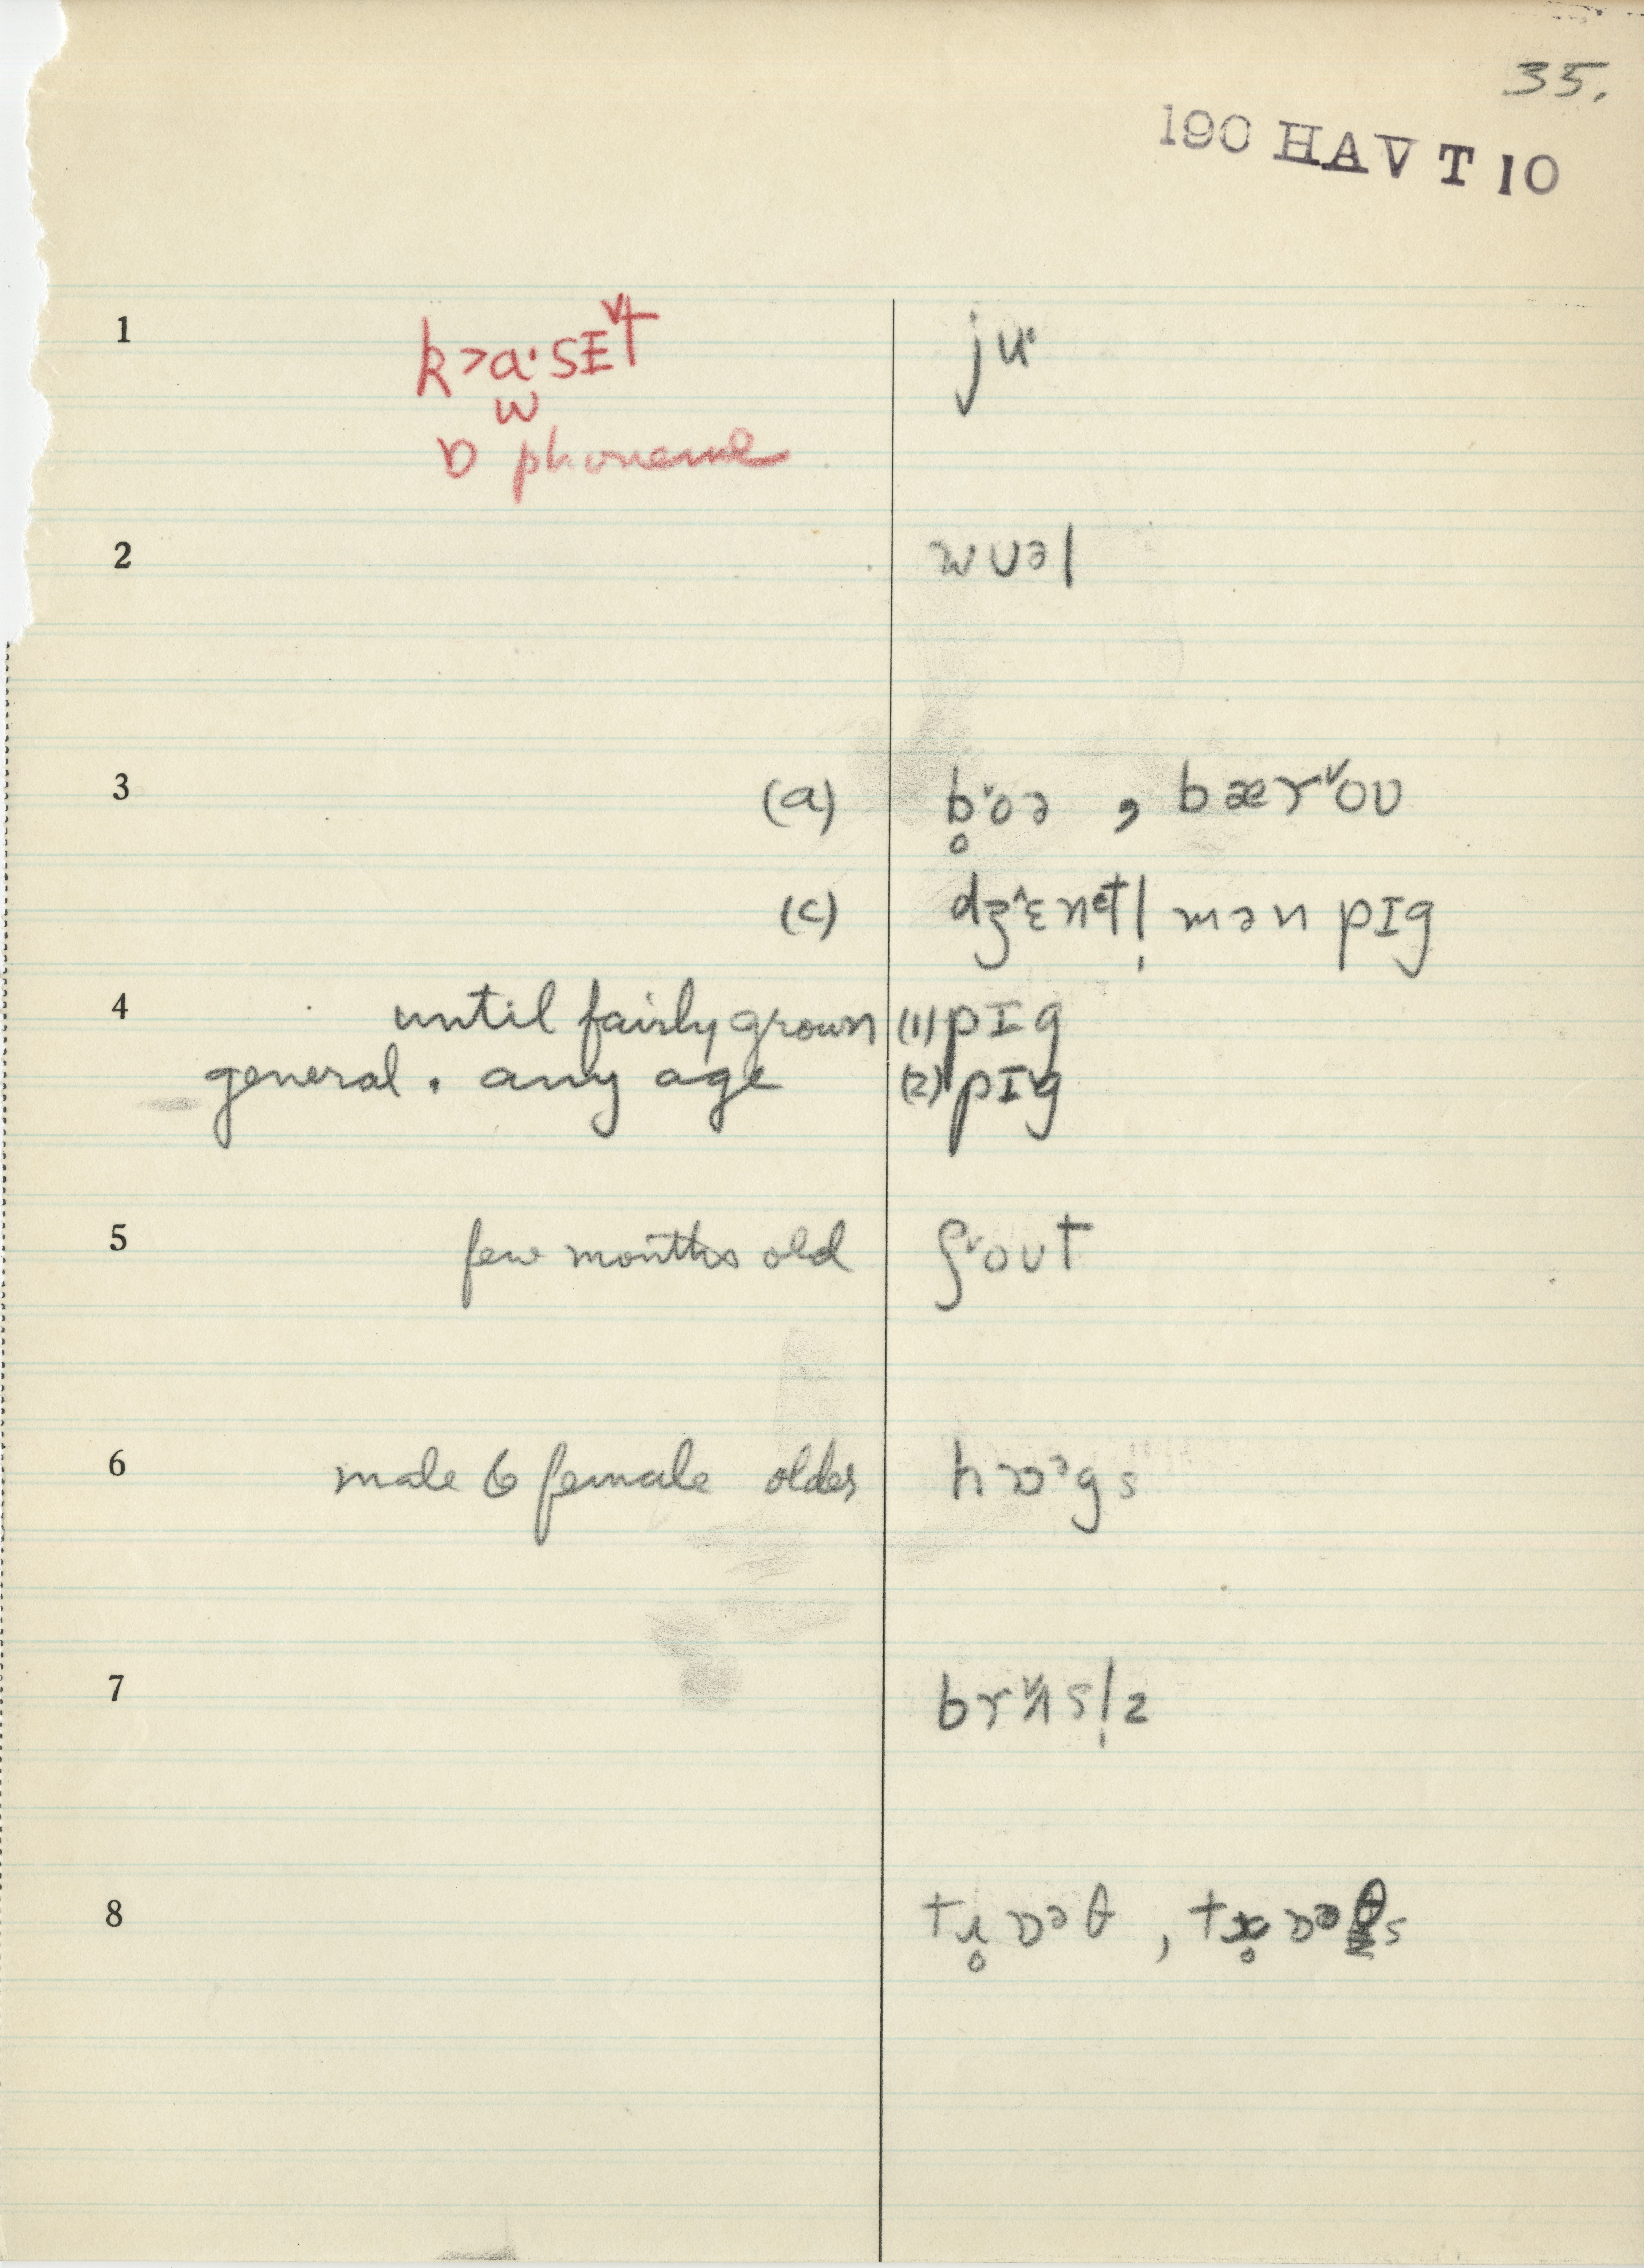 35.
190 HAV T 10
1 k>a·sɪᵛt ju·
w
ɒ phoneme
2 wʊəl
3 (a) b̥ᵛoə , bærᵛoʊ
(c) dʒ^ɛnətl̩mən pɪg
4 until fairly grown (1) pɪg
general . any age (2) pɪg
5 few months old ʃᵛoʊt
6 male & female older hɒᵊgs
7 brᵛɪsl̩z
8 tɹ̥ɒᵊθ , tɹ̥ɒᵊθs